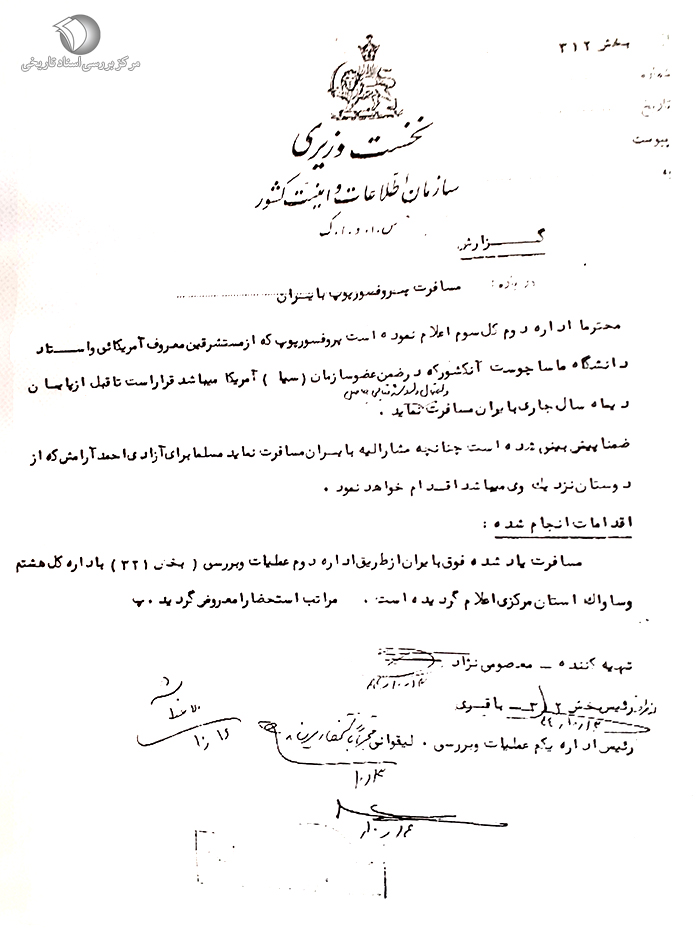 مرکز بررسی اسناد تاریخی
بخش ۳۱۲
شماره
تاریخ
پیوست
نخست وزیری
سازمان اطلاعات و امنیت کشور
س.ا.و.ا.ک
گزارش
درباره : مسافرت پروفسور پوپ بایران
محترما اداره دوم کل سوم اعلام نموده است پروفسور پوپ که از مستشرقین معروف آمریکائی و استاد
دانشگاه ماساچوست آنکشور که در ضمن عضو سازمان ( سیا ) آمریکا میباشد قرار است تا قبل از پایان
دیماه سال جاری بایران مسافرت نماید .
ضمنا پیش بینی شده است چنانچه مشارالیه بایران مسافرت نماید مسلما برای آزادی احمد آرامش که از
دوستان نزدیک وی میباشد اقدام خواهد نمود .
اقدامات انجام شده :
مسافرت یاد شده فوق بایران از طریق اداره دوم عملیات و بررسی ( بخش ۳۲۱ ) باداره کل هشتم
و ساواک استان مرکزی اعلام گردیده است . مراتب استحضارا معروض گردید . پ
تهیه کننده – معصومی نژاد
رئیس بخش ۳۱۲ – باقری
رئیس اداره یکم عملیات و بررسی . لیقوانی
۱۰/۳
۱۰/۱۶
۱۰/۱۴